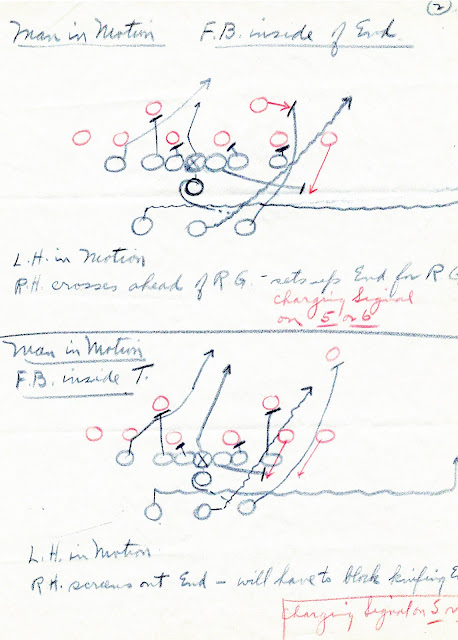 (2)
Man in Motion F.B. inside of End.
L.H. in Motion
R.H. crosses ahead of R G. - sets up End for R G
charging signal
on 5 or 6
Man in Motion
F.B. inside T.
L.H. in Motion
RH. screens out End - will have to block knifing E
charging signal on 5 or